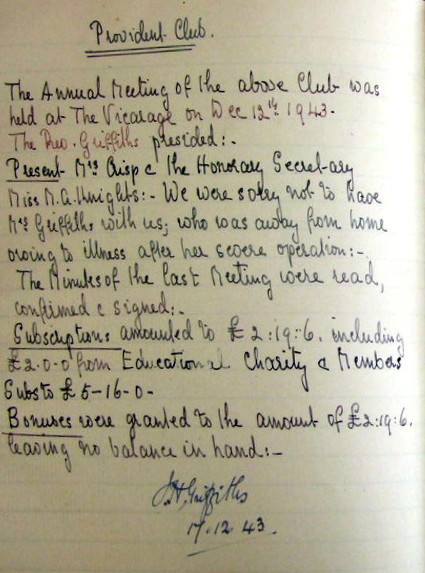 Provident Club.
The Annual Meeting of the above Club was
held at The Vicarage on Dec 12th 1943.
The Rev. Griffiths presided:-
Present Mrs Crisp & the Honorary Secretary
Miss M.A. Knights:- We were sorry not to have
Mrs Griffiths with us, who was away from home
owing to illness after her severe operation:-
The Minutes of the last Meeting were read,
confirmed & signed:-
Subscriptions amounted to £2:19:6. including
£2.0.0 from Educational Charity & Members
Subs to £5-16-0-
Bonuses were granted to the amount of £2:19:6.
leaving no balance in hand:-
Griffiths
17.12.43.